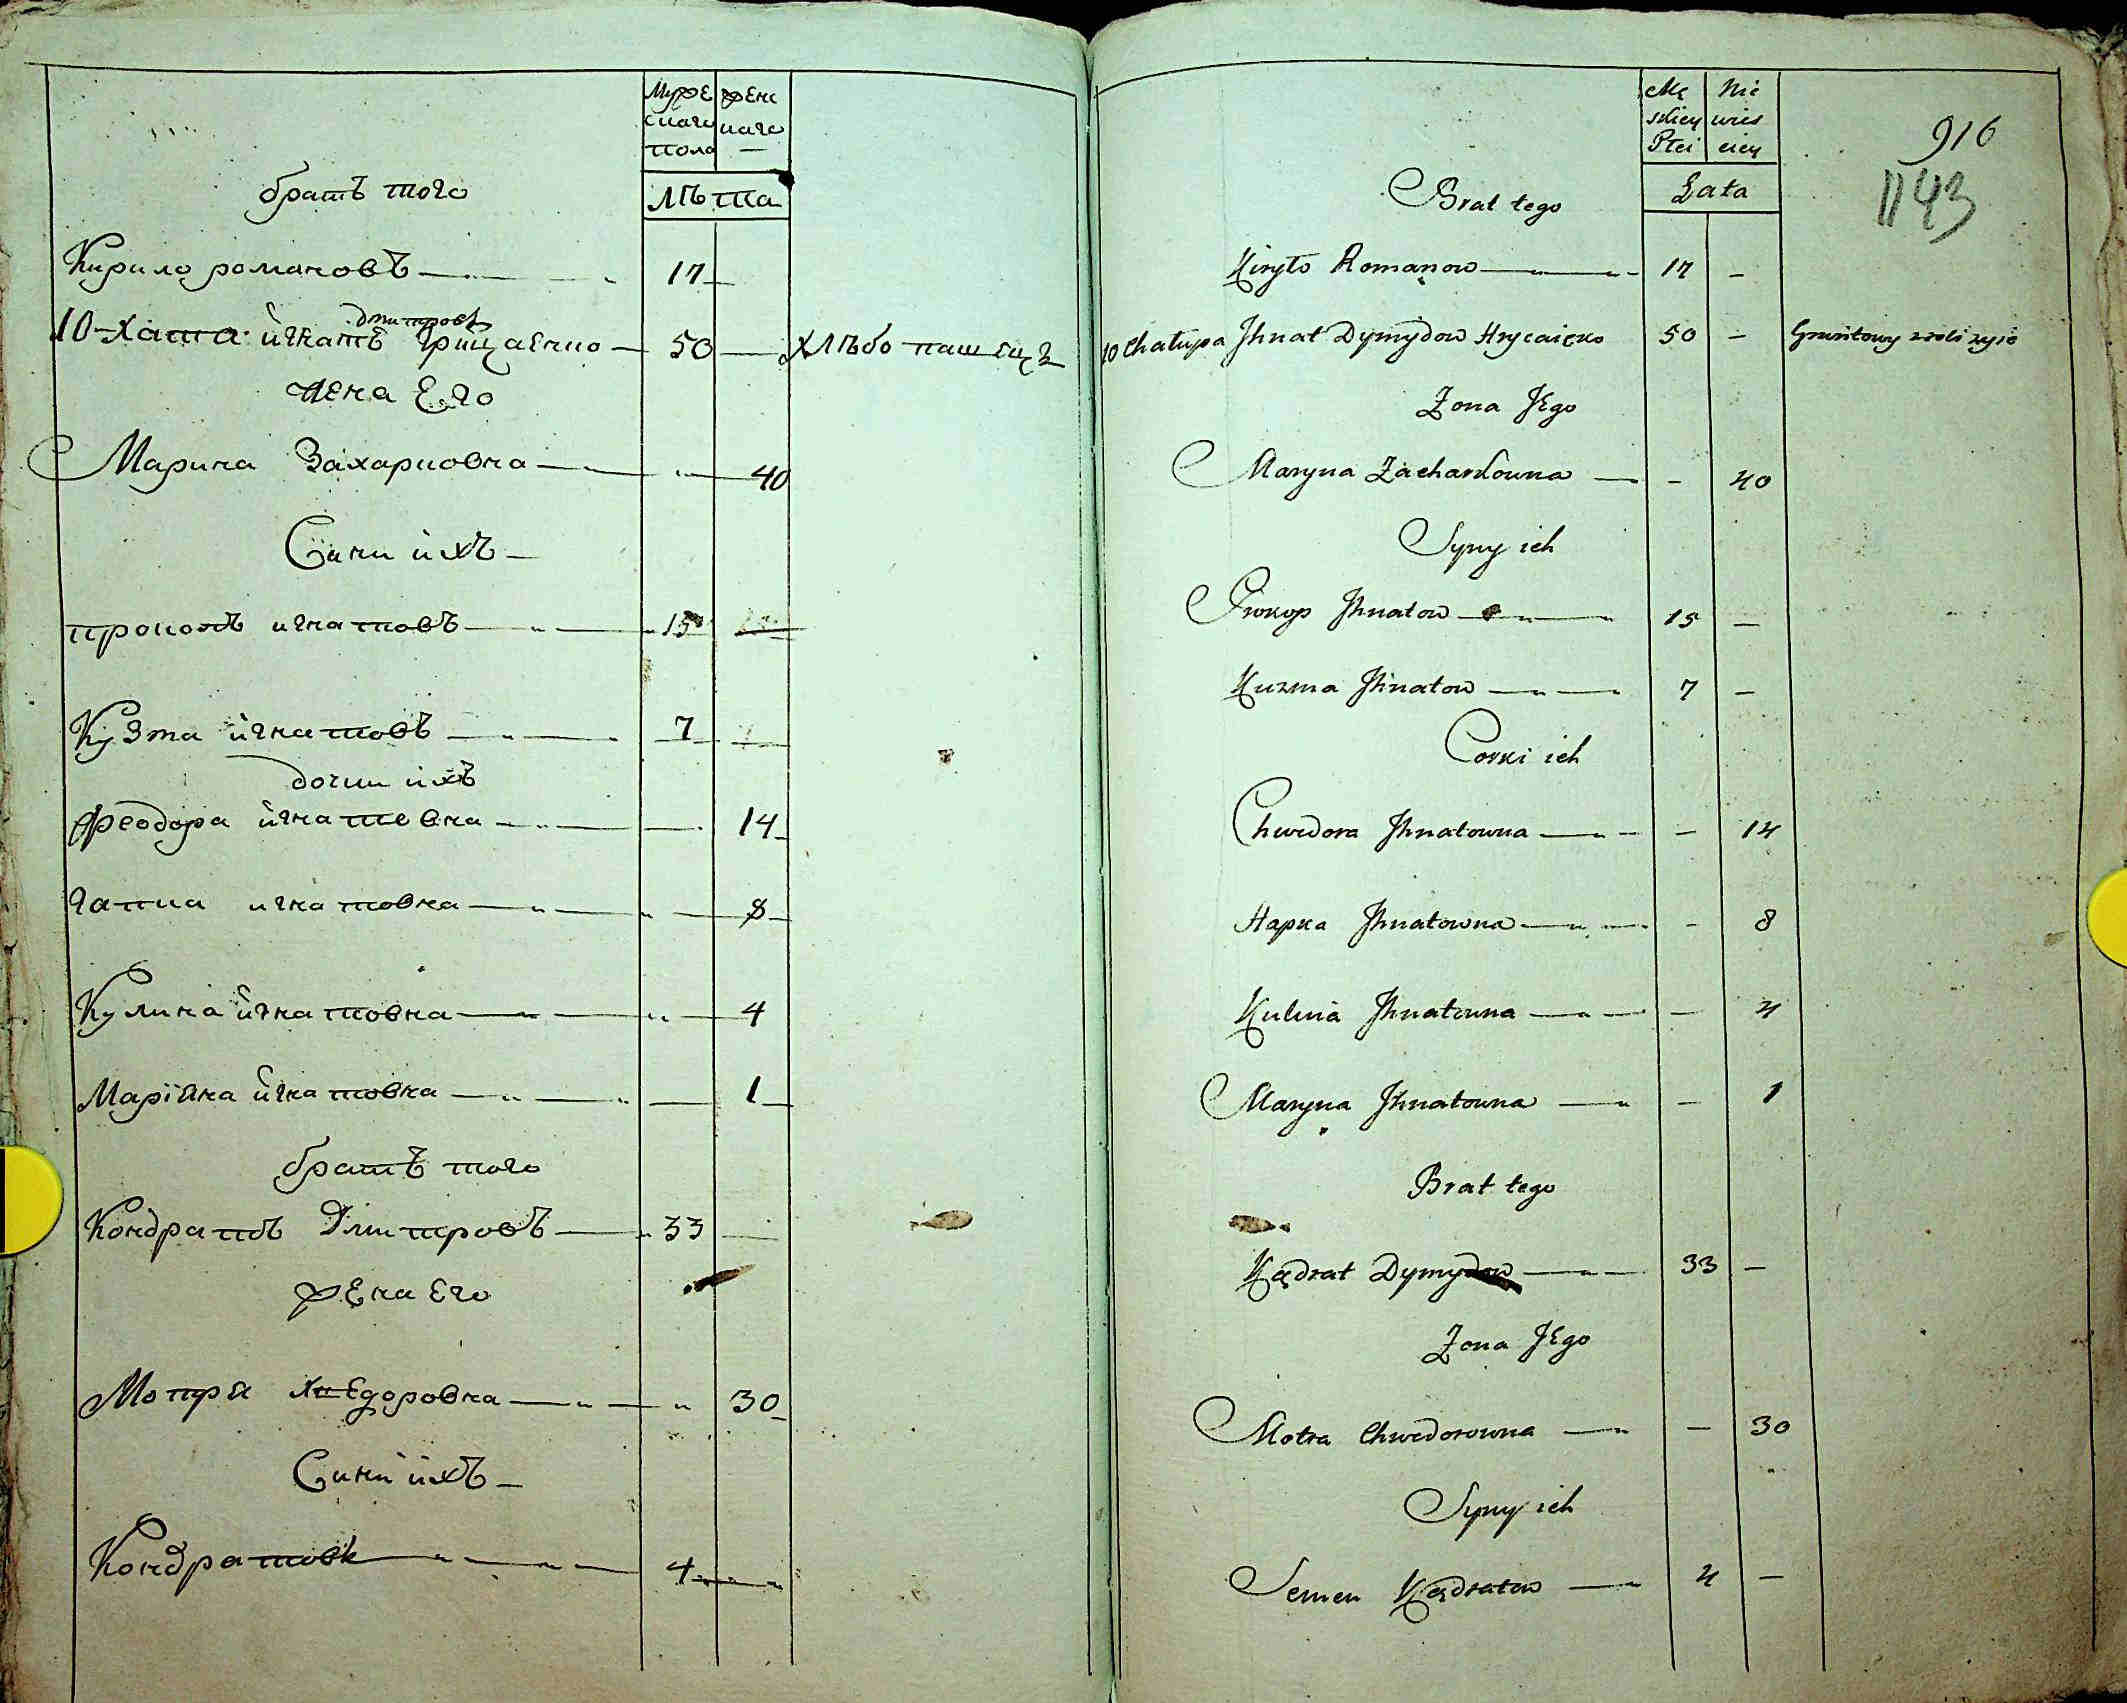 Муже
скаго
пола
жен
наго
Лѣта
братъ того
Кирило романовъ 17
дмитровъ
10 хата игнатъ грицаенко 50 хлѣбопашецъ
жена Его
Марина Захарковна 40
Сини ихъ
прокопъ игнатовъ 15
Кузма игнатовъ 7
дочки ихъ
Феодора игнатовна 14
гапка игнатовна 8
Кулина игнатовна 4
Маріяна игнатовна 1
братъ того
Кондратъ Дмитровъ 33
жена Его
Мотря хведоровна 30
Сини ихъ
Кондратовъ 4
Mę
skiey
Płci
Nie
wies
ciey
Lata
916
1143
Brat tego
Kiryło Romanow 17 -
10 Chałupa Jhnat Dymydow Hrycaięko 50 - Gruntowy z roli żyie
Zona JEgo
Maryna Zacharkowna - 40
Syny ich
Prokop Jhnatow 15 -
Kuzma Jhnatow 7 -
Corki ich
Chwedora Jhnatowna - 14
Hapka Jhnatowna - 8
Kulina Jhnatowna - 4
Maryna Jhnatowna - 1
Brat tego
Kądrat Dymydow 33 -
Zona JEgo
Motra Chwedorowna - 30
Syny ich
Semen Kądratow 4 -